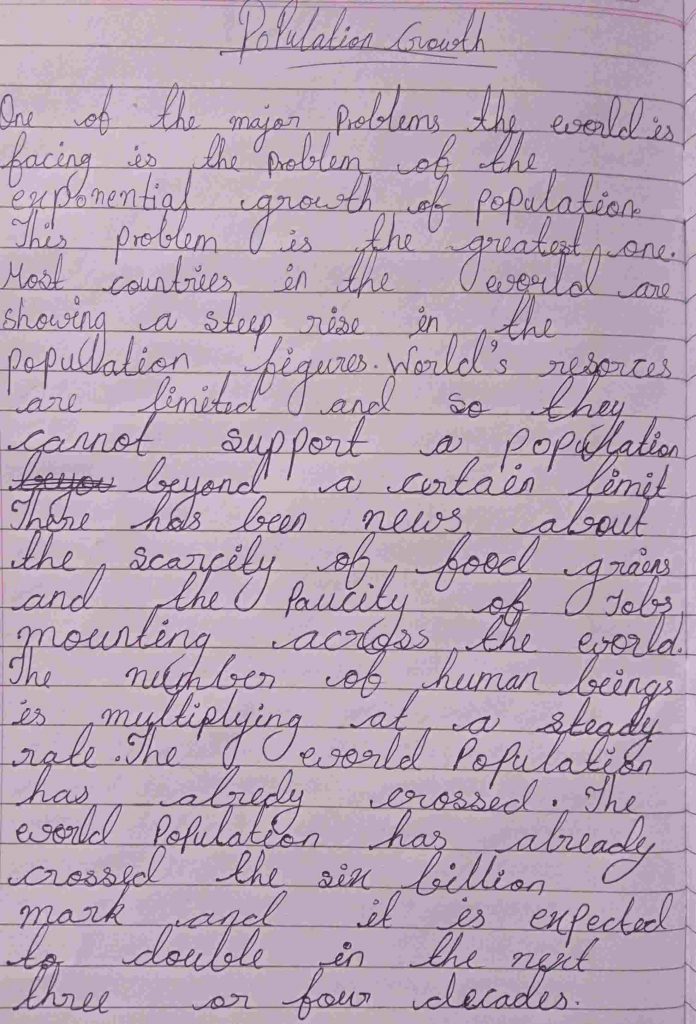 Population Growth
One of the major Problems the world is
facing is the problem of the
exponential growth of population.
This problem is the greatest one.
Most countries in the world are
showing a steep rise in the
popullation figures. World's resorces
are limited and so they
cannot support a population
beyou beyond a certain limit
There has been news about
the scarcity of food grains
and the Paucity of Jobs
mounting across the world.
The number of human beings
is multiplying at a steady
rate. The world Population
has alredy crossed. The
world Population has already
crossed the six billion
mark and it is expected
to double in the next
three or four decades.